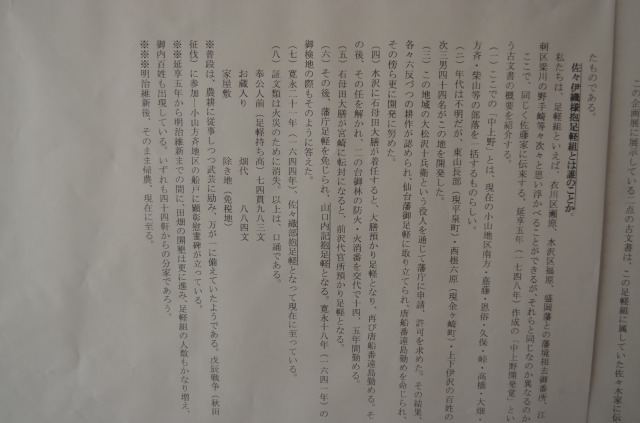 この画展に展示している二点の古文書は、この足軽組に属していた佐々木家に伝
たものである。
佐々伊織様抱足軽組とは誰のことか。
私たちは、足軽組といえば、衣川区瀬原、水沢区福原、盛岡藩との藩境相去御番所、江
刺区梁川の野手崎等々次々と思い浮かべることができるが、それらと同じなのか異なるのか
ここで、同じく佐藤家に伝来する、延享五年(一七四八年)作成の「中上野開発覚」とい
う古文書の概要を紹介する。
(一)ここでの「中上野」とは、現在の小山地区南方・斎藤・恩俗・久保・峠・高橋・大畑・
方斉・柴山等の部落を一括するものらしい。
(二)年代は不明だが、東山長部(現平泉町)・西根六原(現金ケ崎町)・上下伊沢の百姓の
次三男四十四名がこの地を開発した。
(三)この地域の大松沢十兵衛という役人を通じて藩庁に申請、許可を求めた。その結果、
各々六反づつの耕作が認められ、仙台藩御足軽に取り立てられ、唐船番遠島勤めを命じられ、
その傍ら更に開発に努めた。
(四)水沢に石母田大膳が着任すると、大膳預かり足軽となり、再び唐船番遠島勤める。そ
の後、その任を解かれ、二の台御林の防火・火消番を交代で十四、五年間勤める。
(五)石母田大膳が宮崎に転封になると、前沢代官所預かり足軽となる。
(六)その後、藩庁足軽を免じられ、山口内記抱足軽となる。寛永十八年(一六四一年)の
御検地の際もそのように答えた。
(七)寛永二十一年(一六四四年)、佐々織部抱足軽となって現在に至っている。
(八)証文類は火災のために消失、以上は、口誦である。
奉公人前(足軽持ち高)七四貫九八三文
お蔵入り 畑代 八八四文
家屋敷 除き地(免税地)
※普段は、農耕に従事しつつ武芸に励み、万が一に備えていたようである。戊辰戦争(秋田
征伐)に参加―小山方斉地区の船戸に顕彰慰霊碑が立っている。
※※延享五年から明治維新までの間に、田畑の開墾は更に進み、足軽組の人数もかなり増え、
御内百姓も出現している。いずれも四十四軒からの分家であろう。
※※※明治維新後、そのまま帰農、現在に至る。